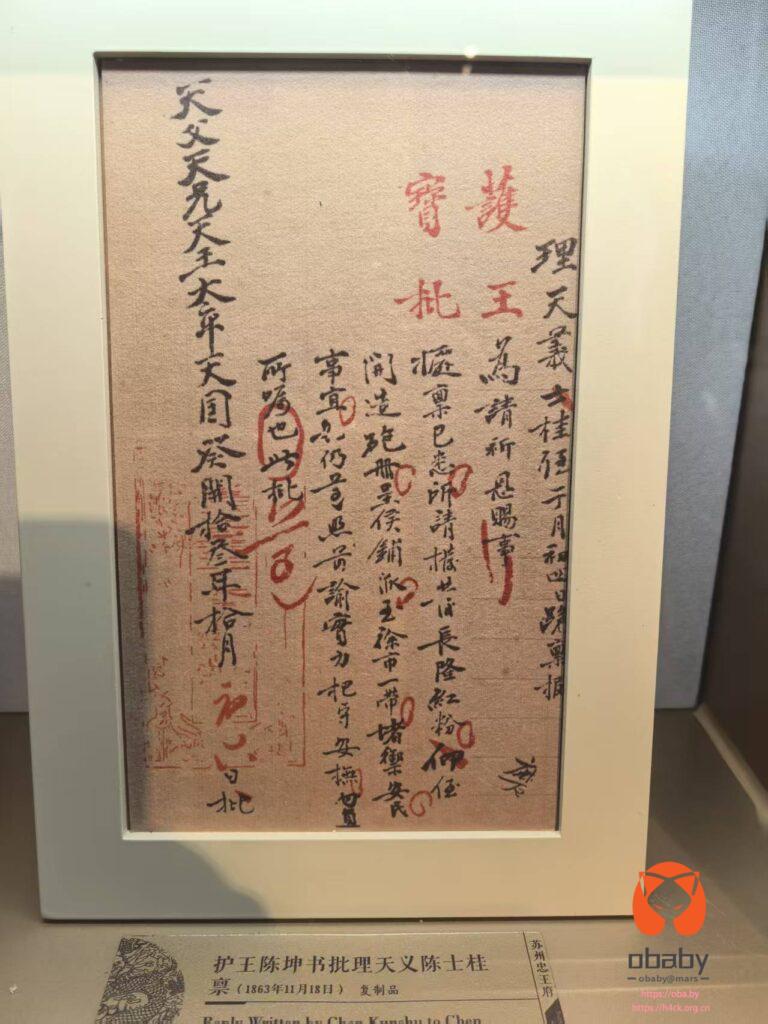 理天義士桂 月初四日 稟报
護王
寶批
為請祈恩賜事
稟已悉所請 長隆紅粉仰
開造 册呈候鋪派至徐市一帶堵禦安民
事宜 仍 照前諭實力把守安撫
所嘱也此批
天父天兄天王太平天国癸開拾叁年拾月初 日批
护王陈坤书批理天义陈士桂
禀(1863年11月18日) 复制品
Reply Written by Chen Kunshu to Chen
苏州忠王府
obaby
obaby@mars
https://oba.by
https://h4ck.org.cn